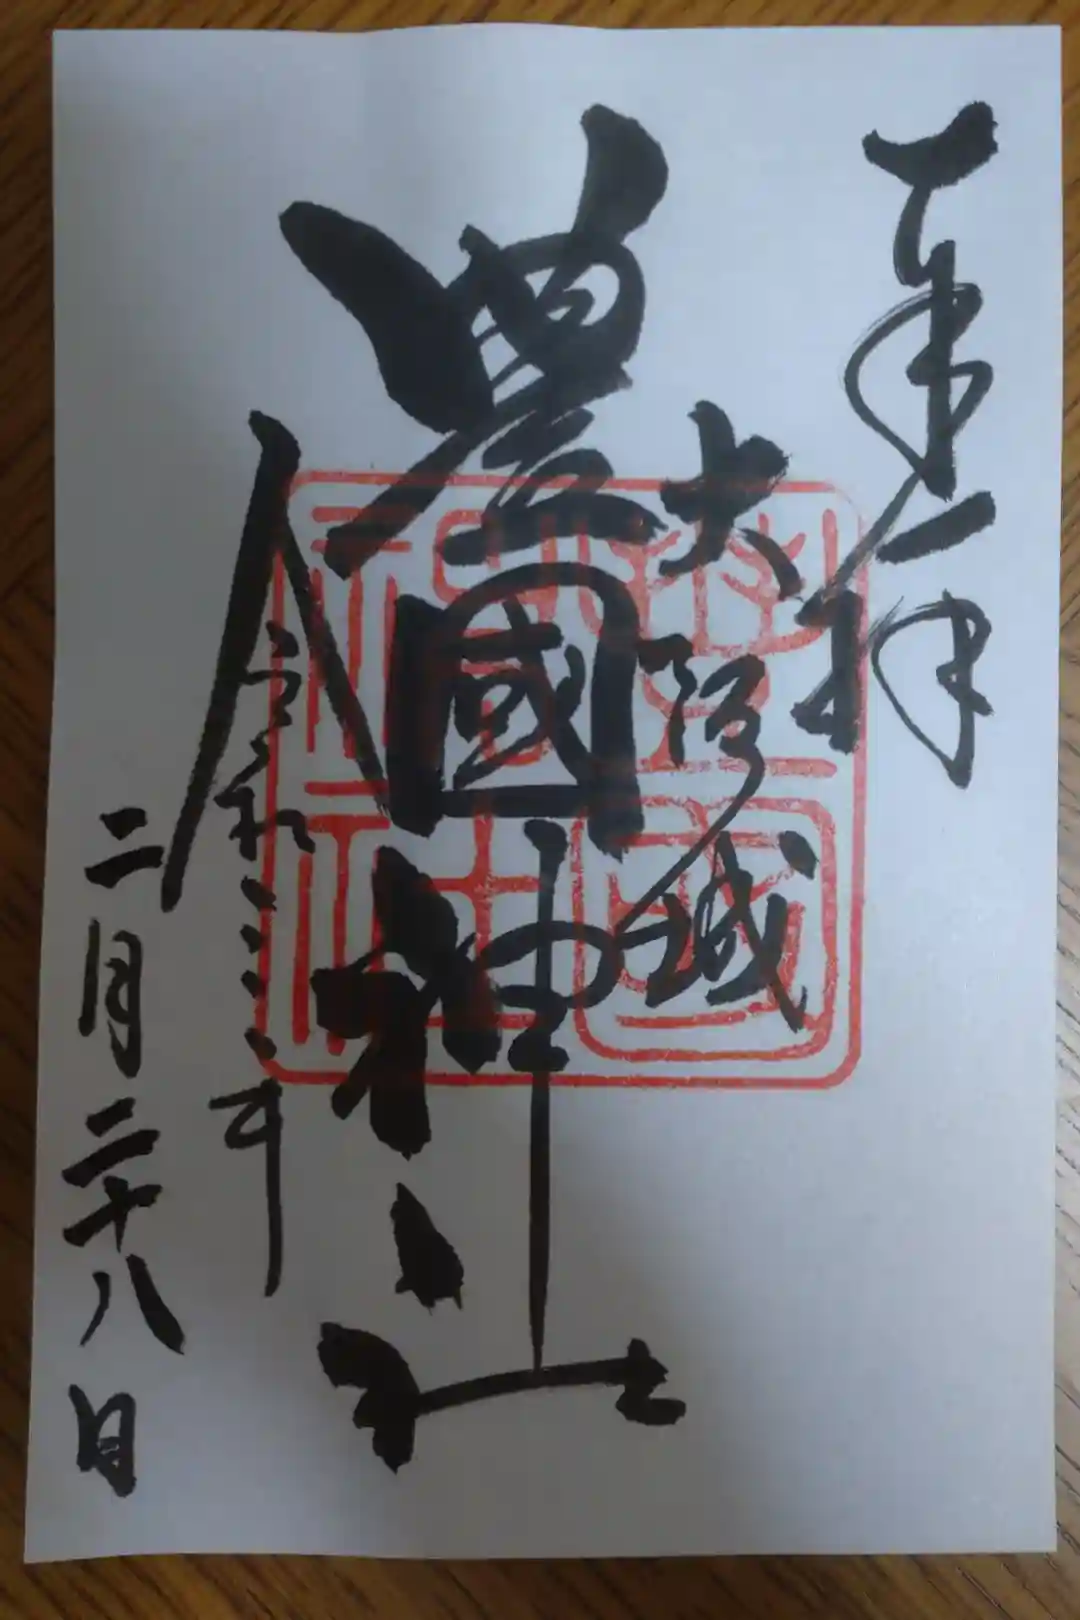 奉拝
大阪城
豊國神社
令和三年
二月二十八日
豊國神社